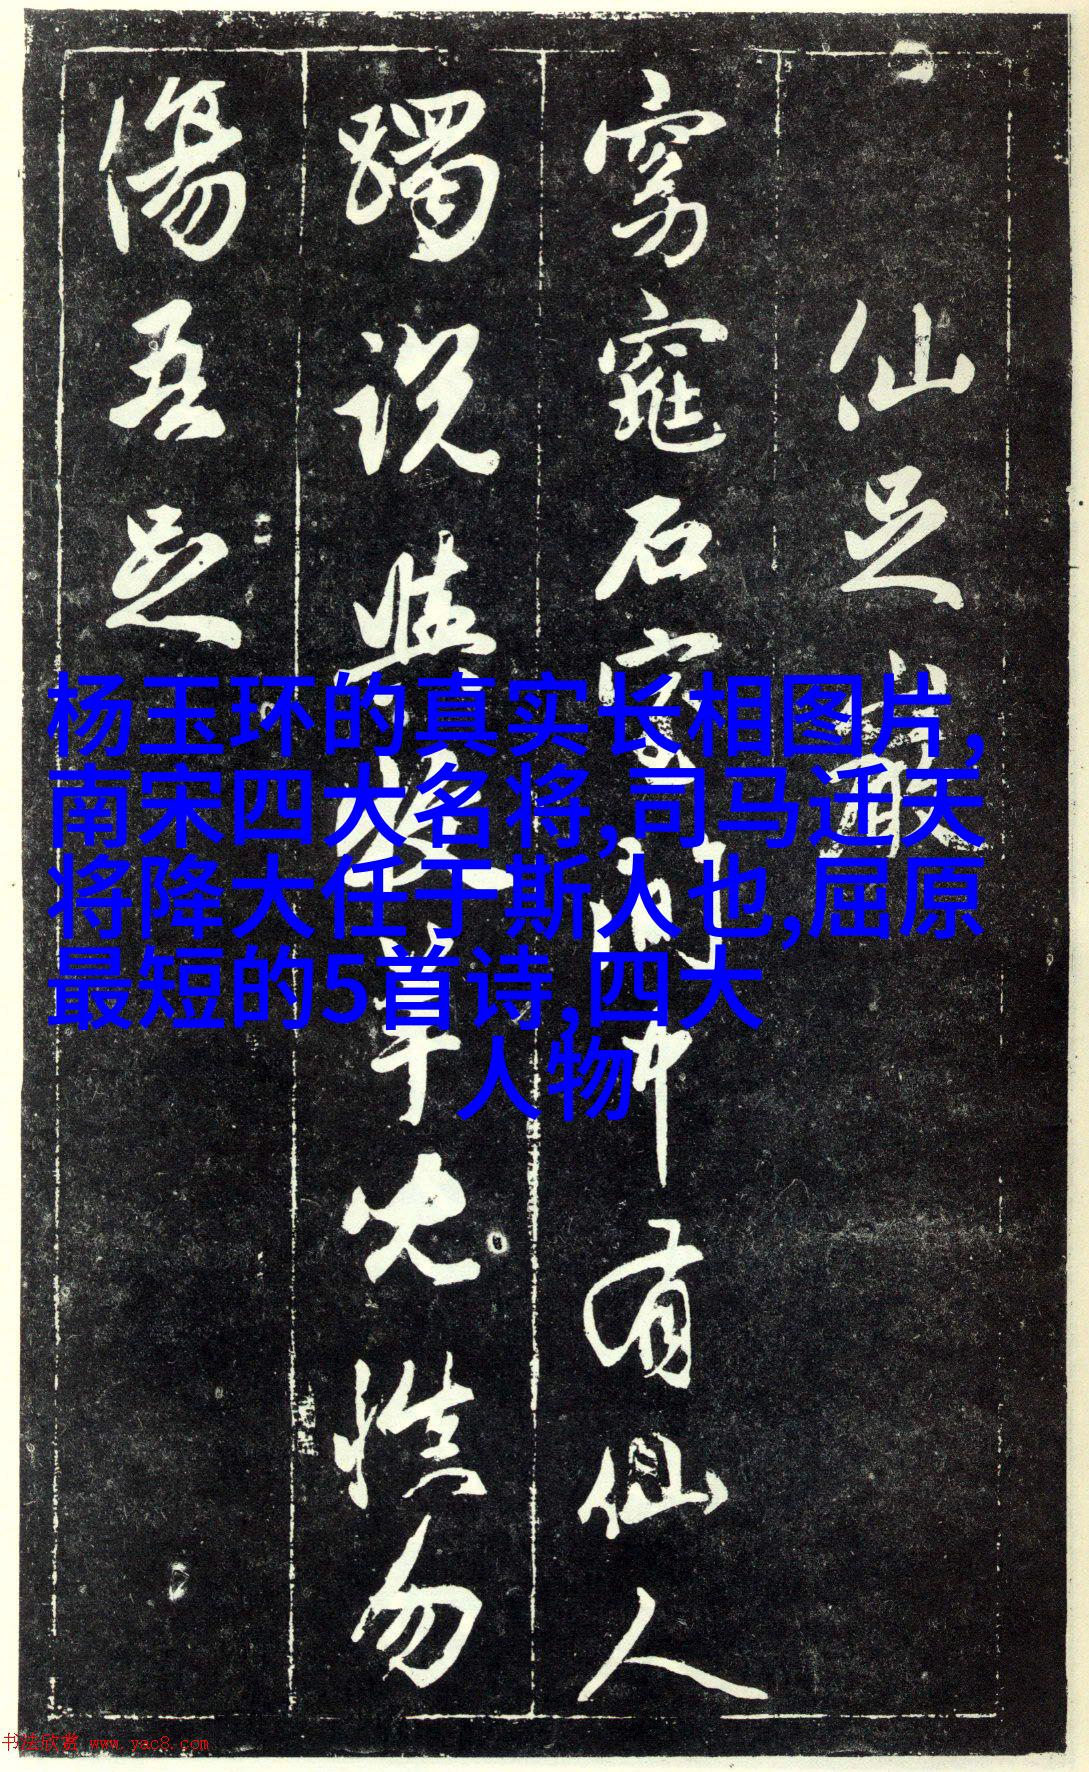 仙足
窈窕石室間中有仙人
躅説
勿
傷吾足
杨玉环的真实长相图片,
南宋四大名将,司马迁天
将降大任于斯人也,屈原
最短的5首诗,四大
人物
书法欣赏 www.yac8.com